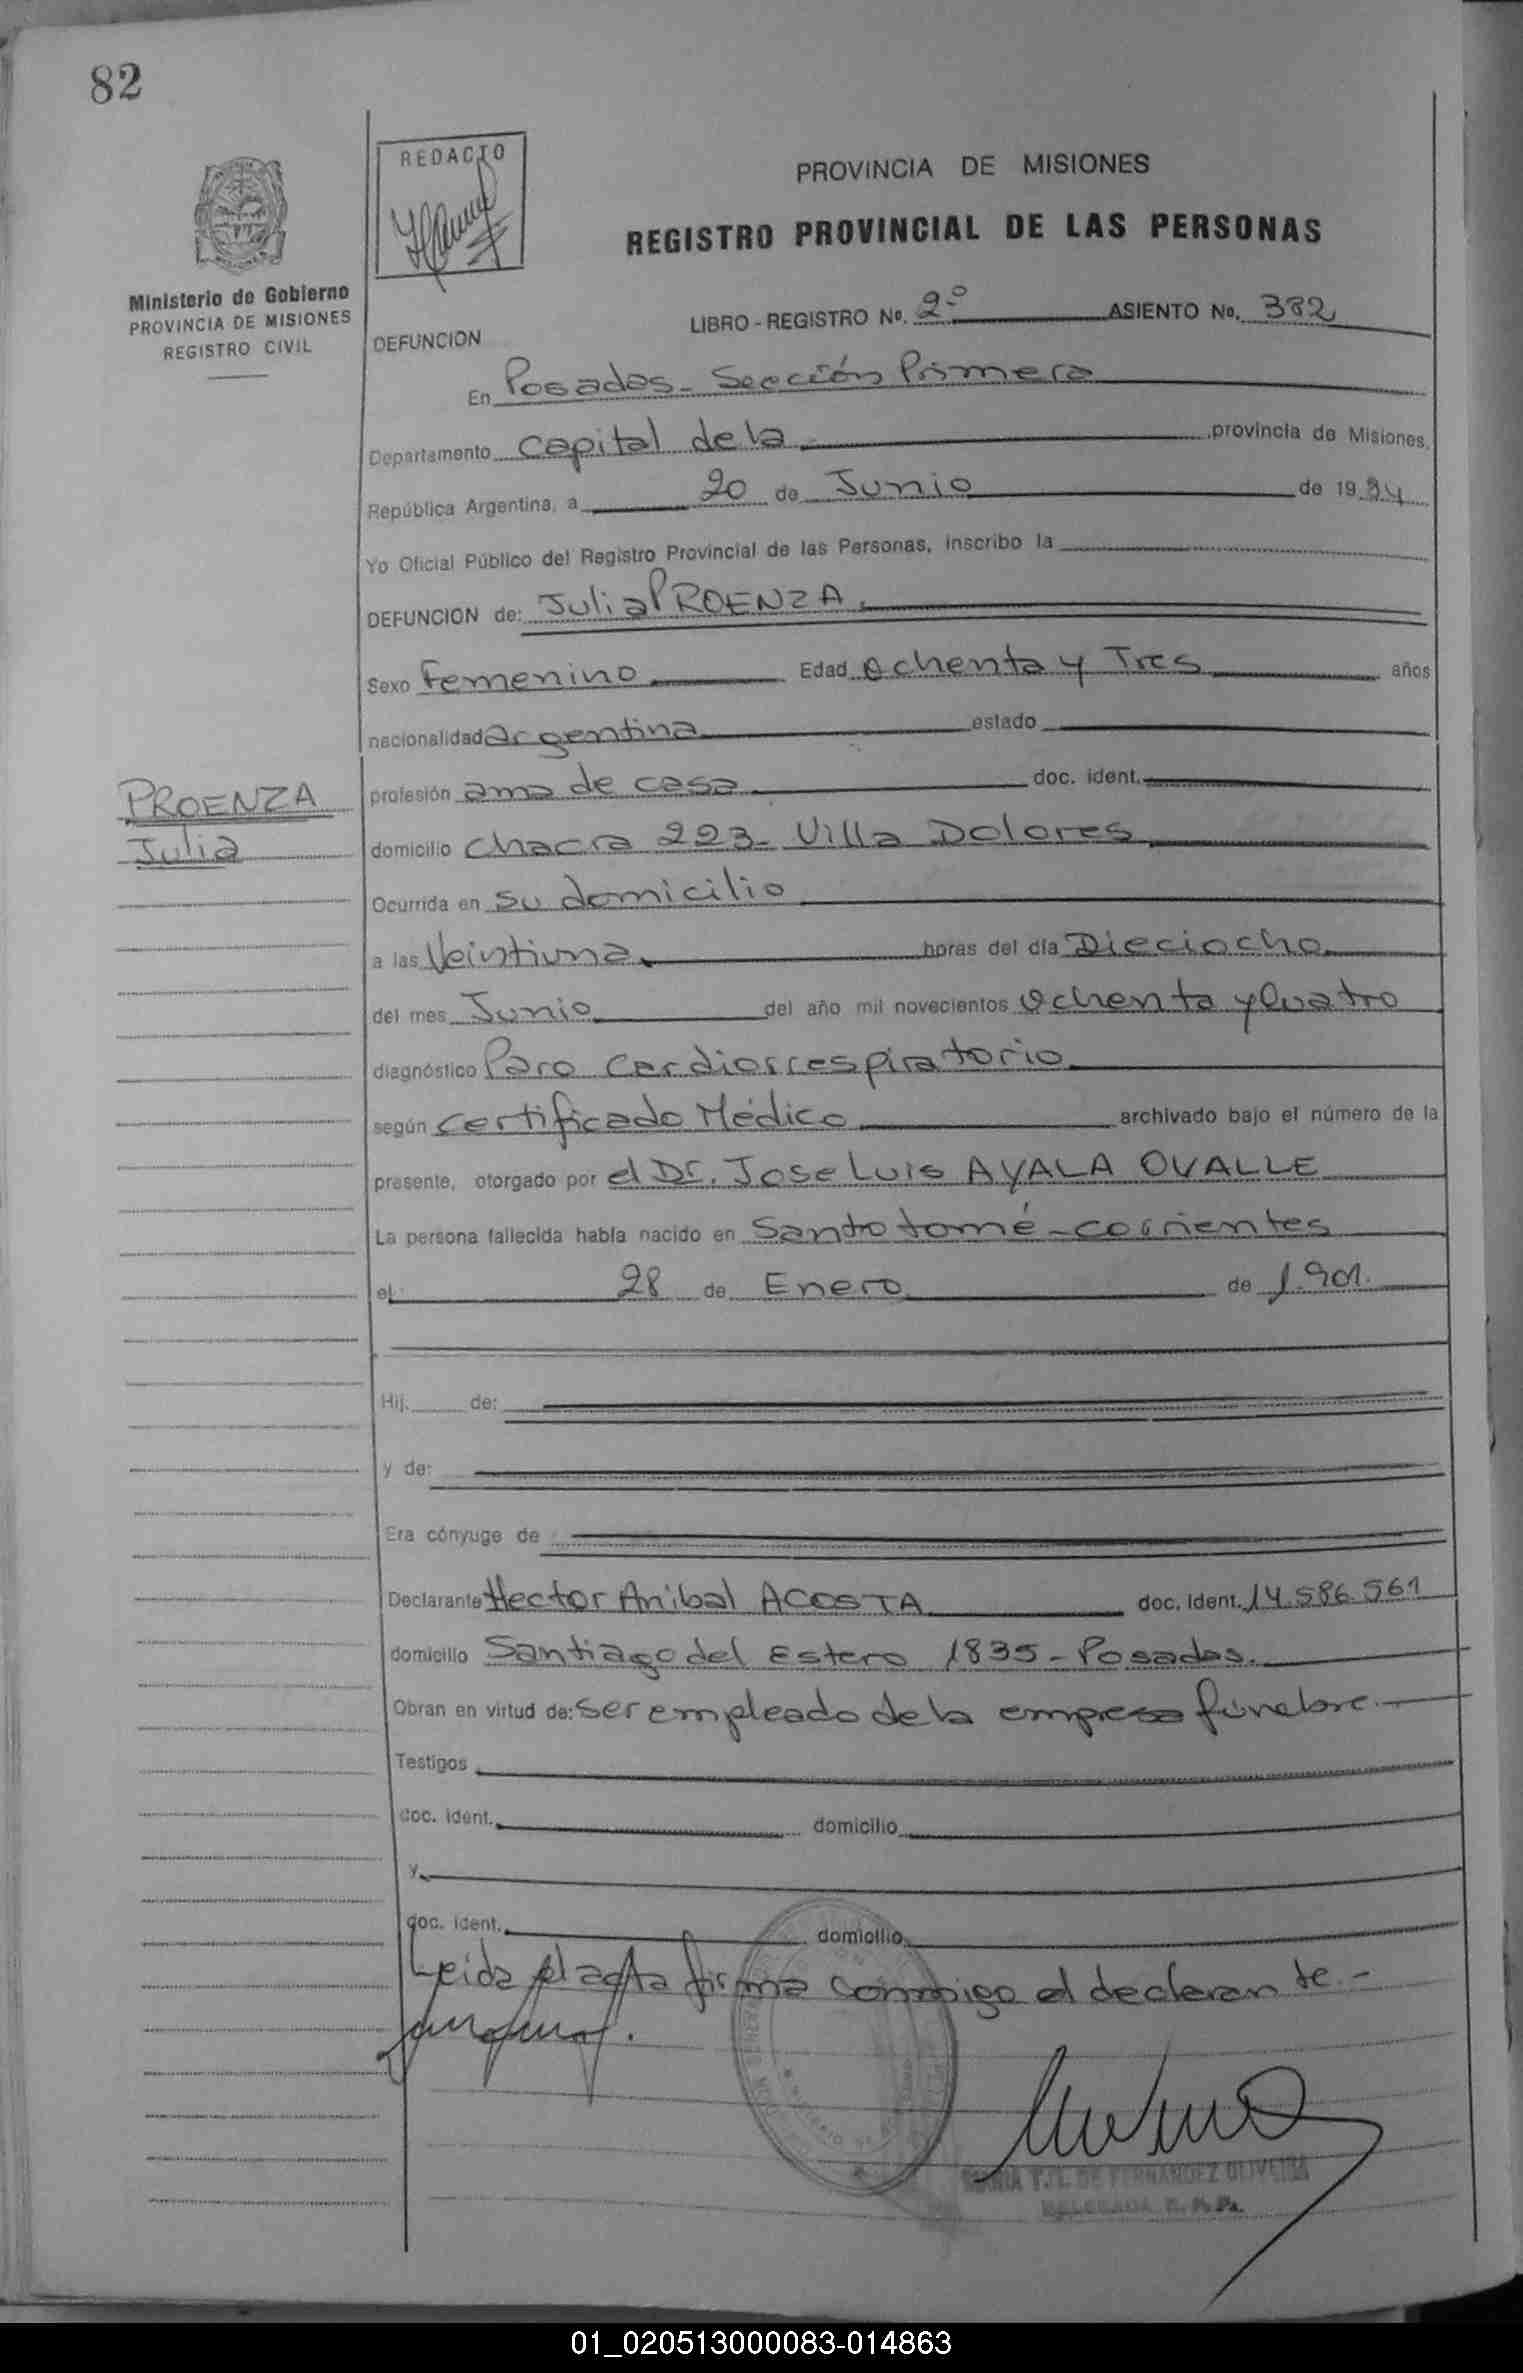 82
REDACTO
PROVINCIA DE MISIONES
REGISTRO PROVINCIAL DE LAS PERSONAS
Ministerio de Gobierno
PROVINCIA DE MISIONES
REGISTRO CIVIL
LIBRO - REGISTRO No. 2º ASIENTO No. 382
DEFUNCION
En Posadas - Sección Primera
Departamento Capital de la provincia de Misiones,
República Argentina, a 20 de Junio de 1984
Yo Oficial Público del Registro Provincial de las Personas, inscribo la
DEFUNCION de: Julia PROENZA.
Sexo Femenino Edad Ochenta y Tres años
nacionalidad argentina estado
profesión ama de casa doc. ident.
PROENZA
Julia
domicilio chacra 223 - Villa Dolores
Ocurrida en su domicilio
a las Veintiuna horas del día Dieciocho
del mes Junio del año mil novecientos Ochenta y Cuatro
diagnóstico Paro Cardiorrespiratorio
según Certificado Médico archivado bajo el número de la
presente, otorgado por el Dr. Jose Luis AYALA OVALLE
La persona fallecida había nacido en Santo tomé - corrientes
el 28 de Enero de 1.901.
Hij. de:
y de:
Era cónyuge de
Declarante Hector Anibal ACOSTA doc. ident. 14.586.561
domicilio Santiago del Estero 1835 - Posadas.
Obran en virtud de: ser empleado de la empresa fúnebre.-
Testigos
doc. ident. domicilio
y
doc. ident. domicilio
Leida el acta firma conmigo el declarante.-
MARIA T. L. DE FERNANDEZ OLIVEIRA
DELEGADA R. P. Ps.
01_020513000083-014863